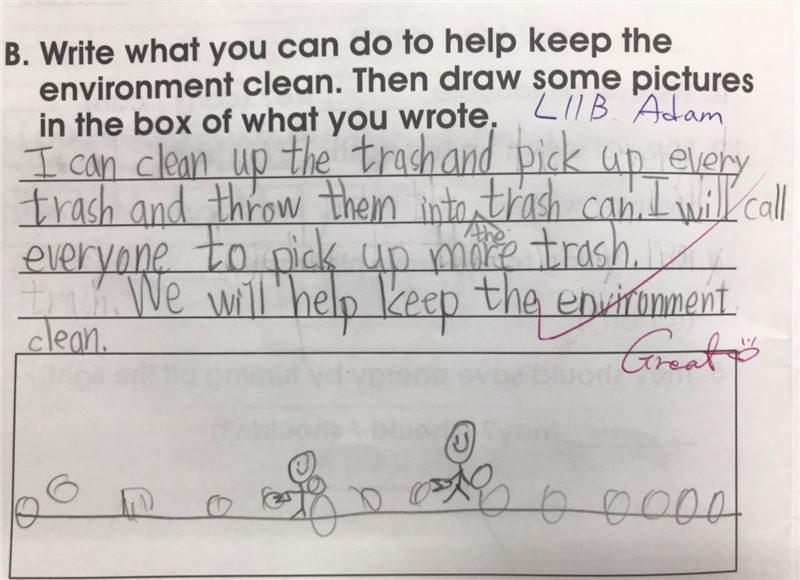 B. Write what you can do to help keep the
environment clean. Then draw some pictures
in the box of what you wrote.
L11B Adam
I can clean up the trash and pick up every
trash and throw them into the trash can. I will call
everyone to pick up more trash.
trash. We will help keep the environment
clean.
Great